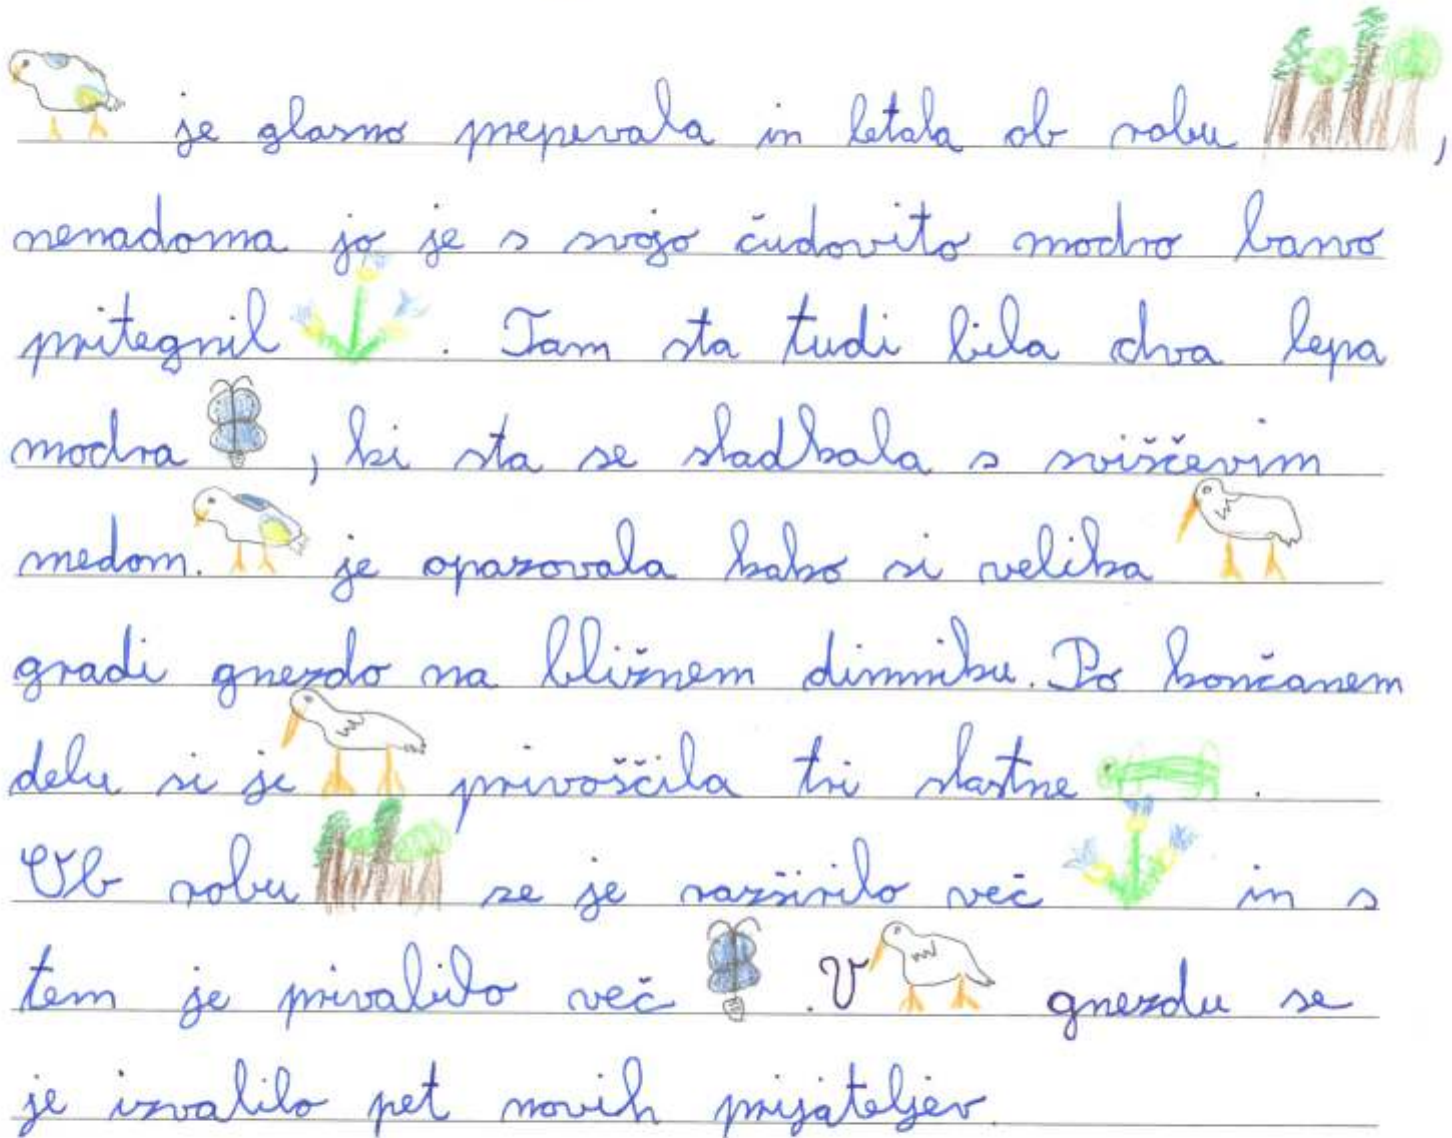 je glasno prepevala in letala ob robu ,
nenadoma jo je s svojo čudovito modro barvo
pritegnil . Tam sta tudi bila dva lepa
modra , ki sta se sladkala s sviščevim
medom. je opazovala kako si velika
gradi gnezdo na bližnem dimniku. Po končanem
delu si je privoščila tri slastne .
Ob robu se je razširilo več in s
tem je privabilo več . V gnezdu se
je izvalilo pet novih prijateljev.